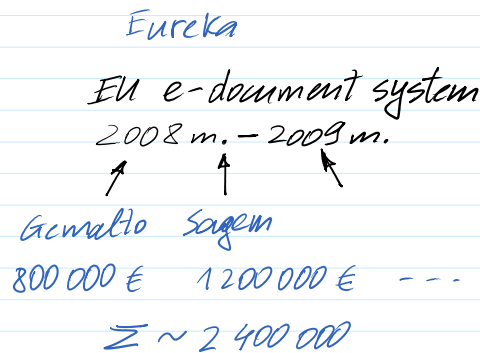 Eureka
EU e-document system
2008 m. – 2009 m.
Gemalto Sagem
800 000 € 1 200 000 € ---
Σ ~ 2 400 000